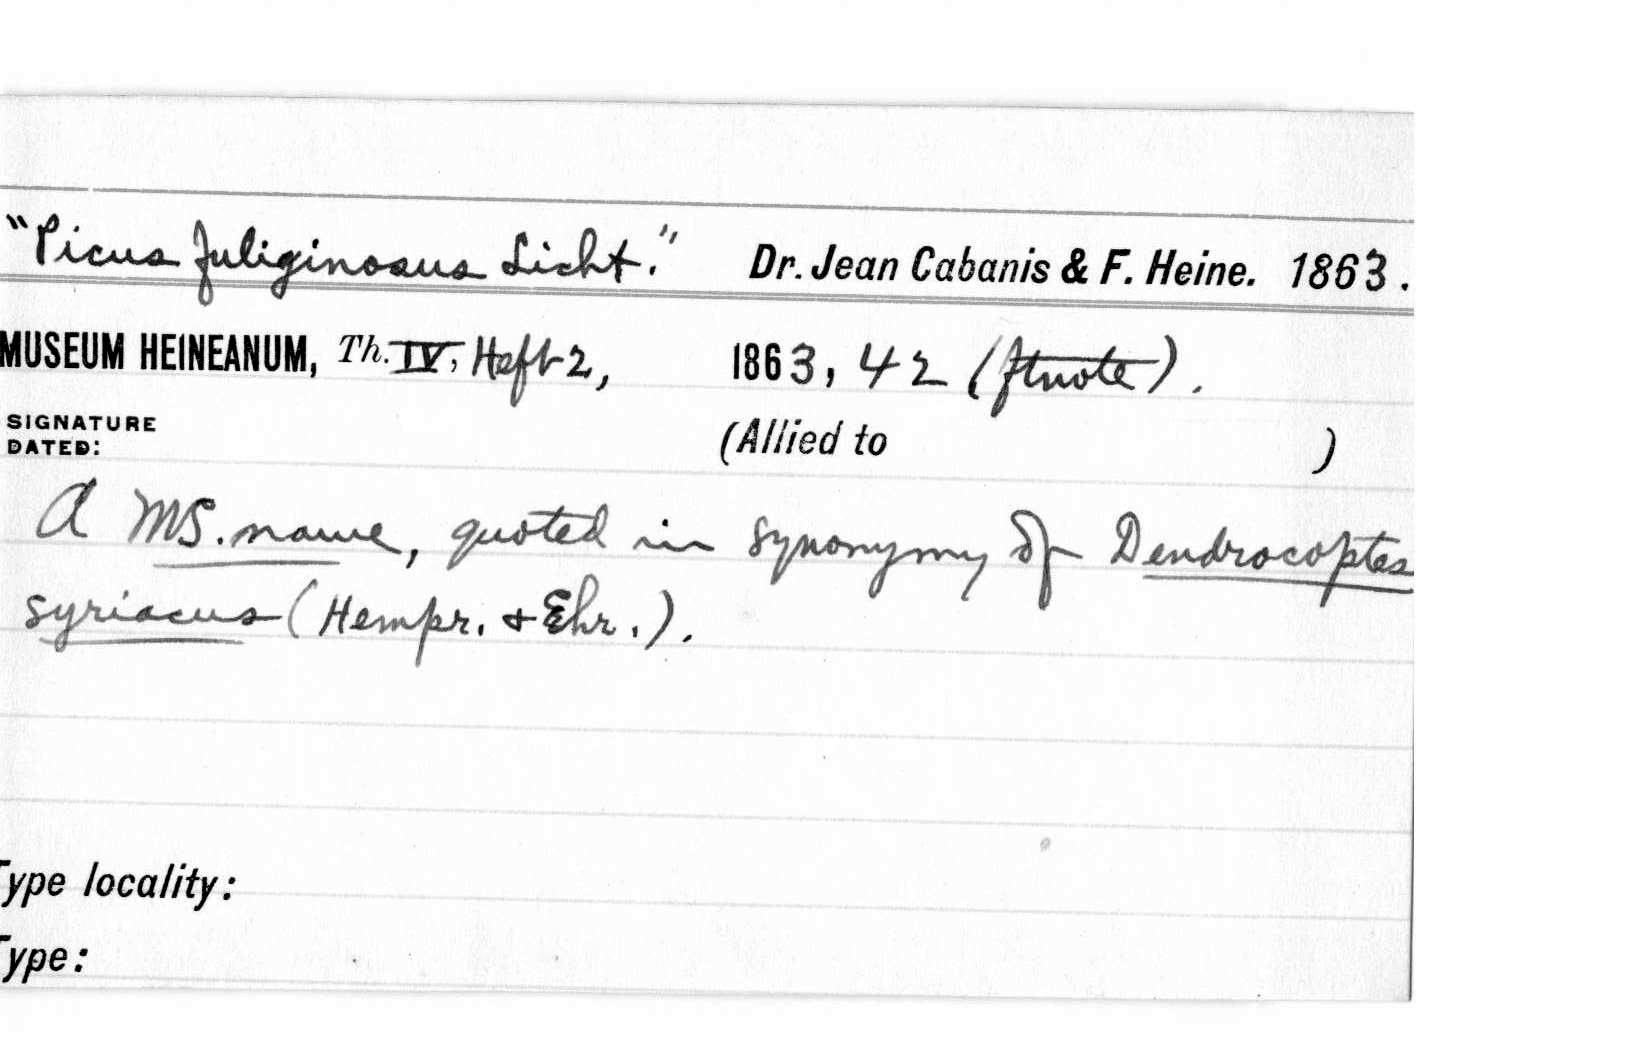 "Picus fuliginosus Licht." Dr. Jean Cabanis & F. Heine. 1863.
MUSEUM HEINEANUM, Th. IV, Heft 2, 1863, 42 (ftnote).
SIGNATURE
DATED: (Allied to )
A MS. name, quoted in synonymy of Dendrocoptes
syriacus (Hempr. + Ehr.).
Type locality:
Type: